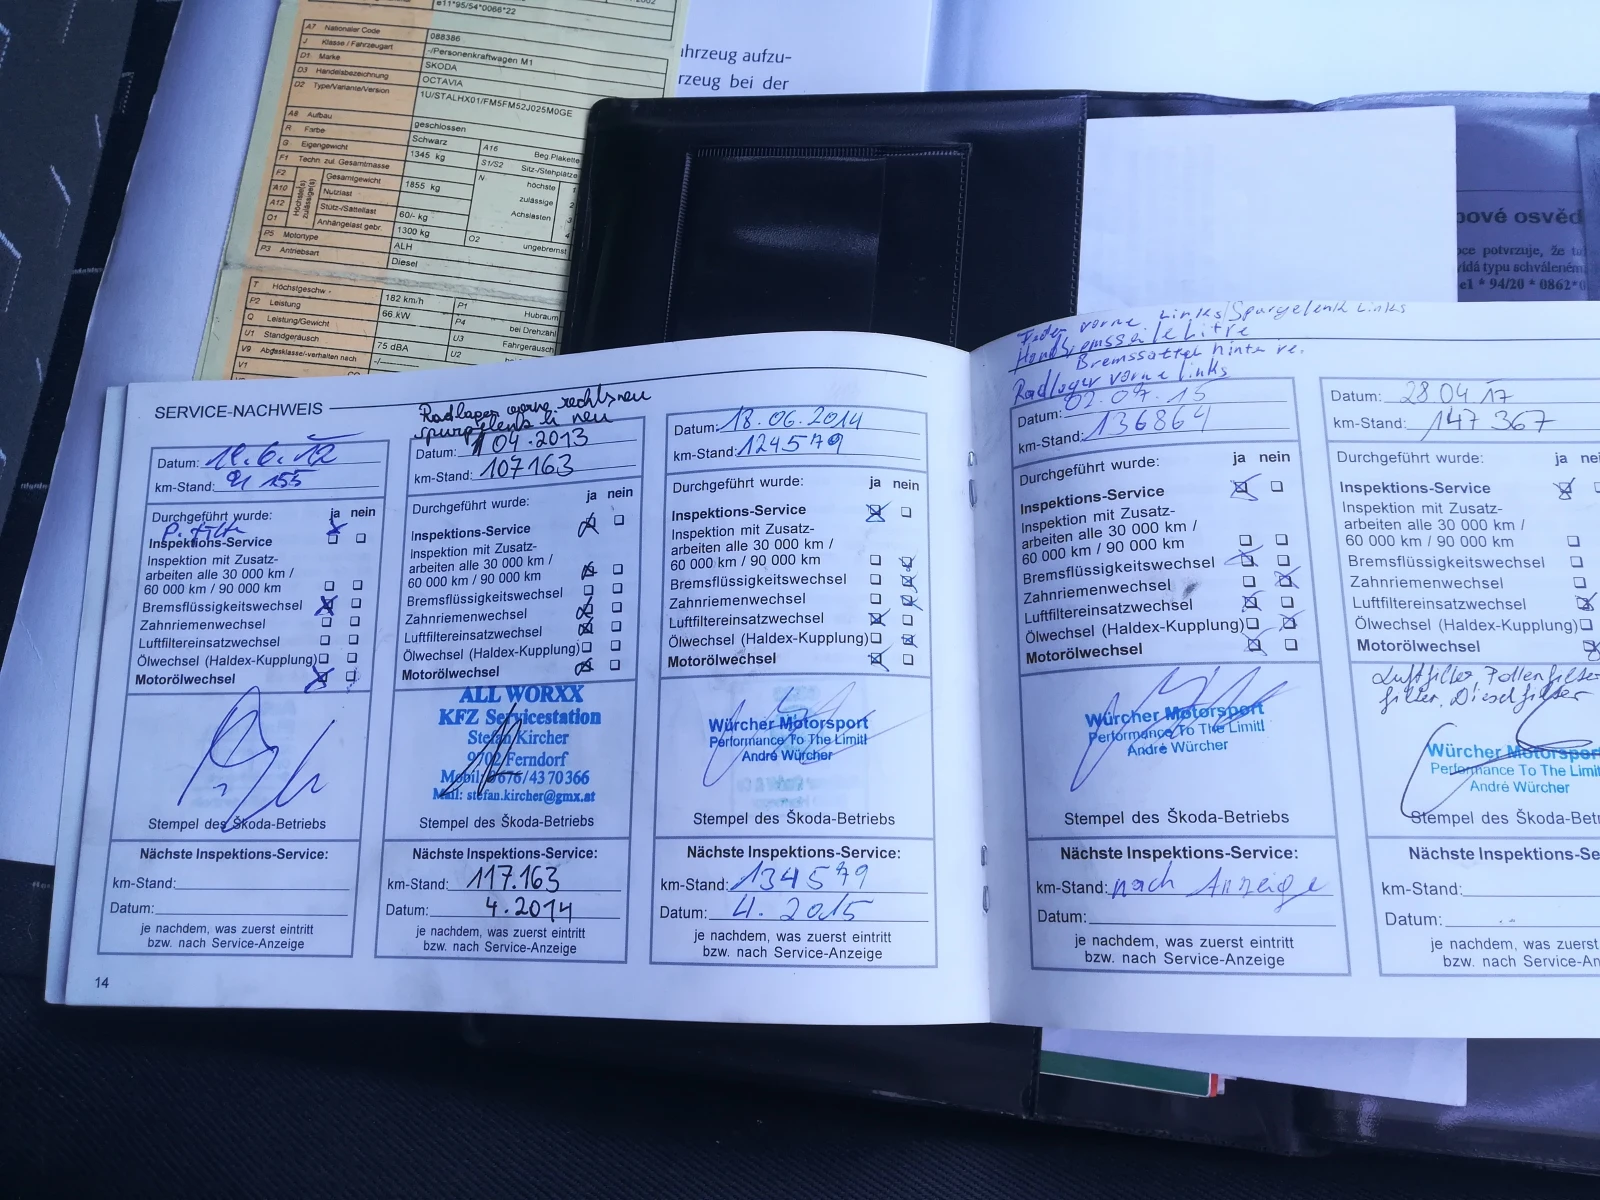 e11*95/54*0066*22
A7 Nationaler Code 088386
J Klasse / Fahrzeugart -/Personenkraftwagen M1
D1 Marke SKODA
D3 Handelsbezeichnung OCTAVIA
D2 Type/Variante/Version 1U/STALHX01/FM5FM52J025M0GE
A8 Aufbau geschlossen
R Farbe Schwarz
G Eigengewicht 1345 kg
F1 Techn. zul. Gesamtmasse
F2 Höchste(s) zulässige(s) Gesamtgewicht 1855 kg
A10 Nutzlast
A12 Stütz-/Sattellast 60/- kg
O1 Anhängelast gebr. 1300 kg
P5 Motortype ALH
P3 Antriebsart Diesel
A16 Beg.Plakette
S1/S2 Sitz-/Stehplätze
N höchste 1
zulässige 2
Achslasten 3
4
O2 ungebremst
T Höchstgeschw. 182 km/h
P2 Leistung 66 kW
Q Leistung/Gewicht
U1 Standgeräusch 75 dBA
V9 Abgasklasse/-verhalten nach -/
V1
P1 Hubraum
P4 bei Drehzahl
U3 Fahrgeräusch
U2
ahrzeug aufzu-
rzeug bei der
pové osvěd
ce potvrzuje, že
vídá typu schválené
e1 * 94/20 * 0862*0
SERVICE-NACHWEIS
Datum:
km-Stand: 91 155
Durchgeführt wurde: ja nein
Inspektions-Service
Inspektion mit Zusatz-
arbeiten alle 30 000 km /
60 000 km / 90 000 km
Bremsflüssigkeitswechsel
Zahnriemenwechsel
Luftfiltereinsatzwechsel
Ölwechsel (Haldex-Kupplung)
Motorölwechsel
Stempel des Škoda-Betriebs
Nächste Inspektions-Service:
km-Stand:
Datum:
je nachdem, was zuerst eintritt
bzw. nach Service-Anzeige
14
Radlager vorne rechts neu
spurgelenk li neu
Datum: 04.2013
km-Stand: 107163
Durchgeführt wurde: ja nein
Inspektions-Service
Inspektion mit Zusatz-
arbeiten alle 30 000 km /
60 000 km / 90 000 km
Bremsflüssigkeitswechsel
Zahnriemenwechsel
Luftfiltereinsatzwechsel
Ölwechsel (Haldex-Kupplung)
Motorölwechsel
ALL WORXX
KFZ Servicestation
Stefan Kircher
9702 Ferndorf
Mobil: 0676/4370366
Mail: stefan.kircher@gmx.at
Stempel des Škoda-Betriebs
Nächste Inspektions-Service:
km-Stand: 117.163
Datum: 4.2014
je nachdem, was zuerst eintritt
bzw. nach Service-Anzeige
Datum: 18.06.2014
km-Stand: 124579
Durchgeführt wurde: ja nein
Inspektions-Service
Inspektion mit Zusatz-
arbeiten alle 30 000 km /
60 000 km / 90 000 km
Bremsflüssigkeitswechsel
Zahnriemenwechsel
Luftfiltereinsatzwechsel
Ölwechsel (Haldex-Kupplung)
Motorölwechsel
Würcher Motorsport
Performance To The Limit!
André Würcher
Stempel des Škoda-Betriebs
Nächste Inspektions-Service:
km-Stand: 134579
Datum: 4. 2015
je nachdem, was zuerst eintritt
bzw. nach Service-Anzeige
vorne Links/Spurgelenk Links
Bremssattel hinten re.
Radlager vorne links
Datum: 02.07.15
km-Stand: 136864
Durchgeführt wurde: ja nein
Inspektions-Service
Inspektion mit Zusatz-
arbeiten alle 30 000 km /
60 000 km / 90 000 km
Bremsflüssigkeitswechsel
Zahnriemenwechsel
Luftfiltereinsatzwechsel
Ölwechsel (Haldex-Kupplung)
Motorölwechsel
Würcher Motorsport
Performance To The Limit!
André Würcher
Stempel des Škoda-Betriebs
Nächste Inspektions-Service:
km-Stand: nach Anzeige
Datum:
je nachdem, was zuerst eintritt
bzw. nach Service-Anzeige
Datum: 28.04.17
km-Stand: 147 367
Durchgeführt wurde: ja ne
Inspektions-Service
Inspektion mit Zusatz-
arbeiten alle 30 000 km /
60 000 km / 90 000 km
Bremsflüssigkeitswechsel
Zahnriemenwechsel
Luftfiltereinsatzwechsel
Ölwechsel (Haldex-Kupplung)
Motorölwechsel
Luftfilter, Pollenfilter
filter, Dieselfilter
Würcher Motorsport
Performance To The Limit
André Würcher
Stempel des Škoda-Betr
Nächste Inspektions-Se
km-Stand:
Datum:
je nachdem, was zuerst
bzw. nach Service-An